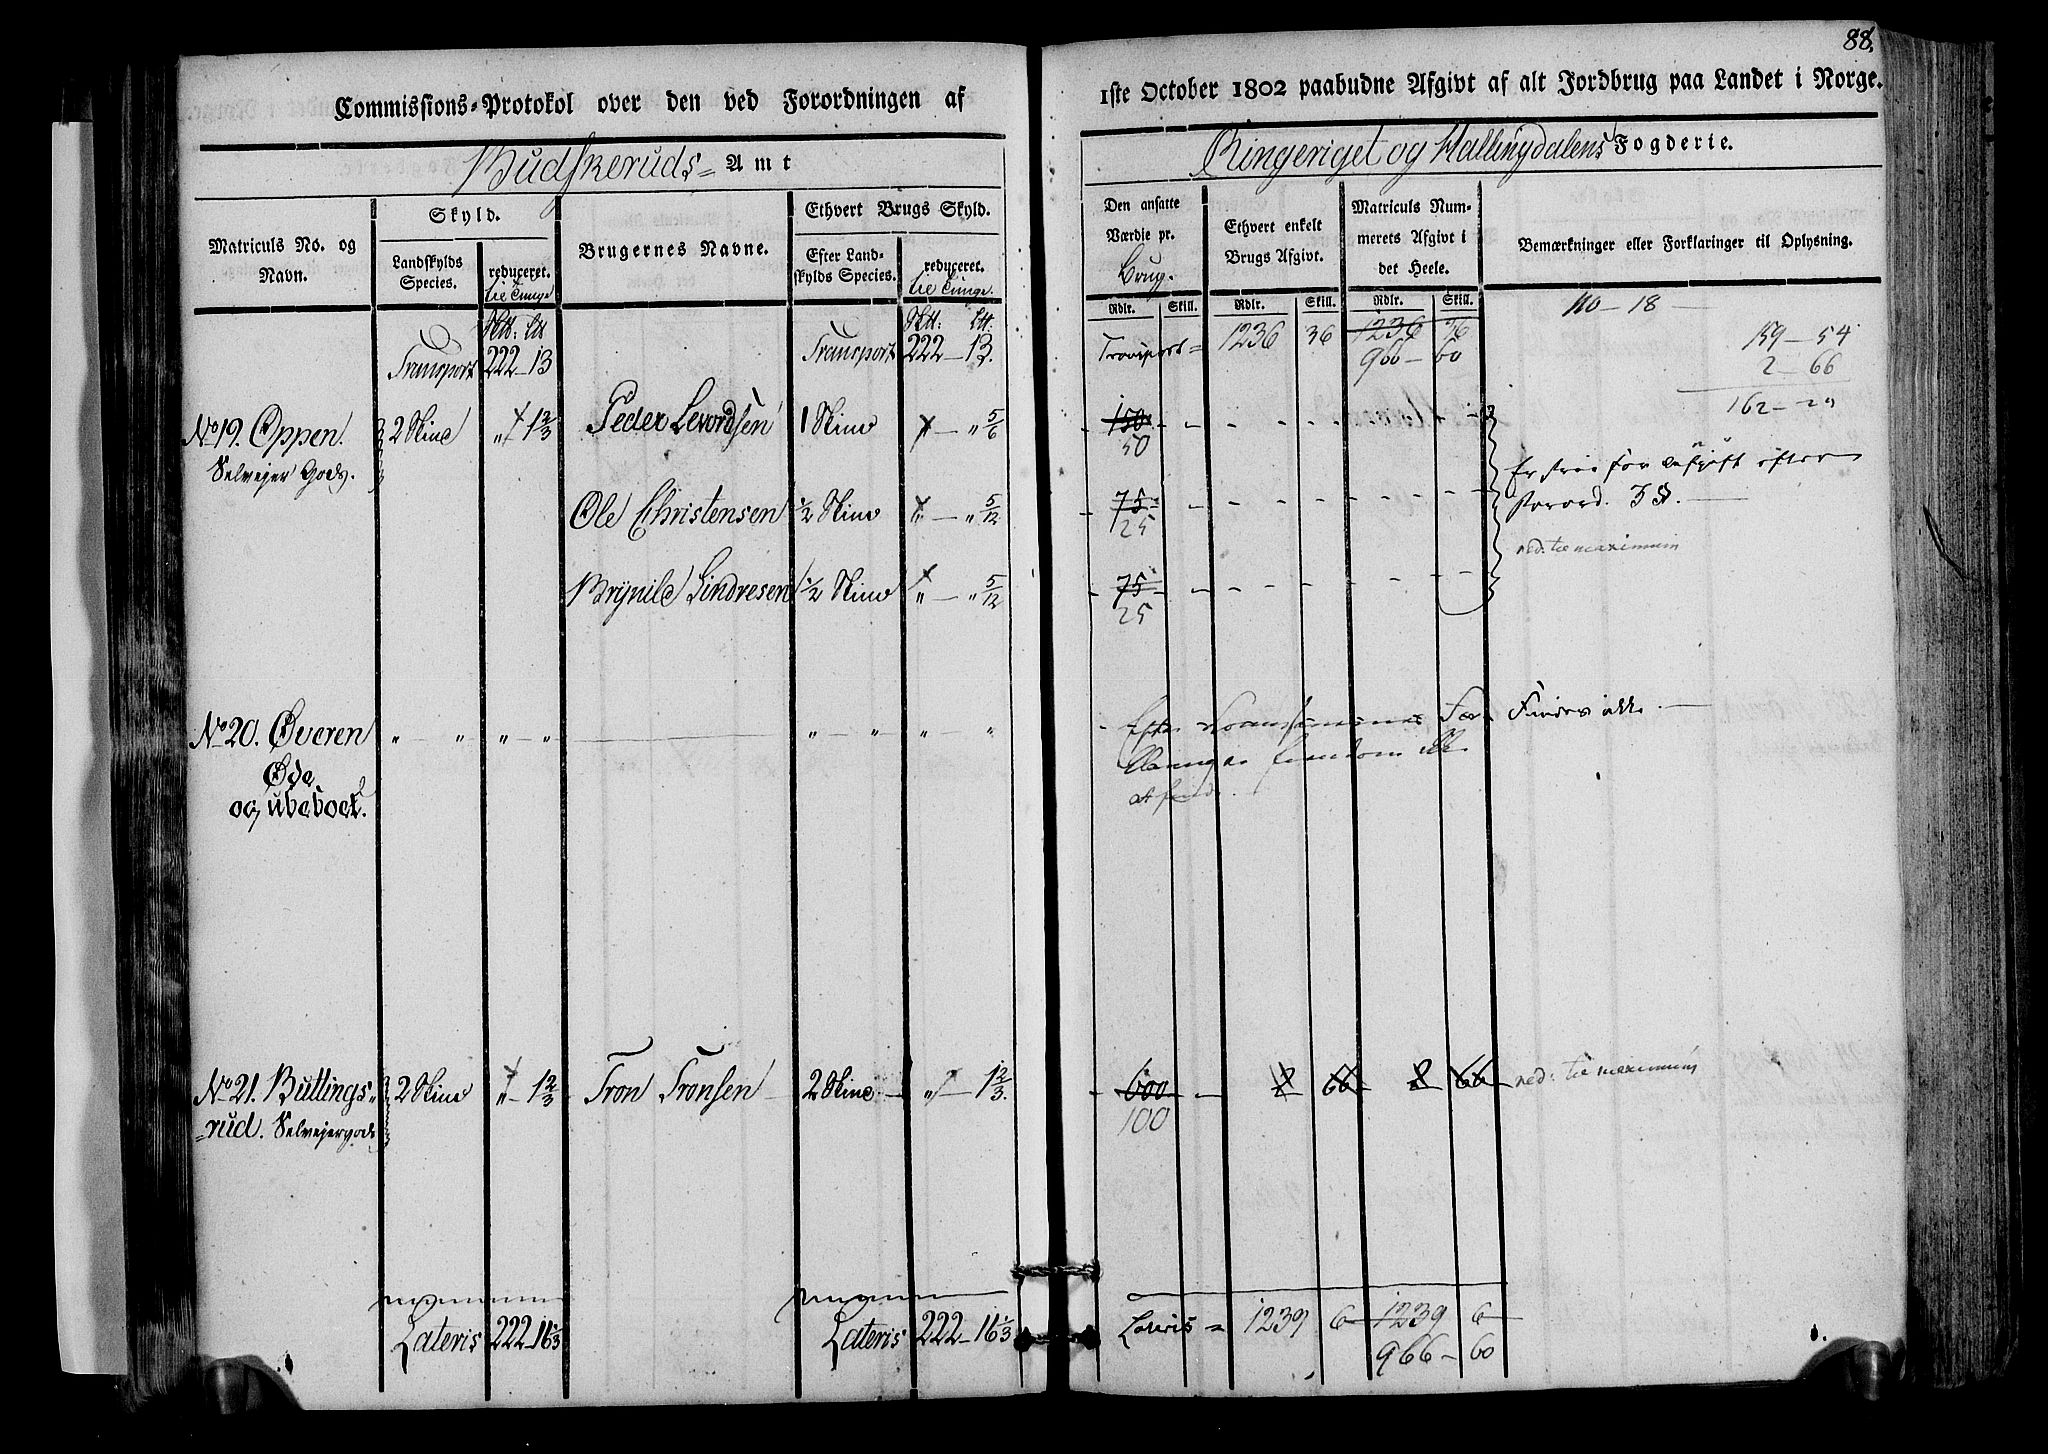 88.
Commissions-Protokol over den ved Forordningen af
1ste October 1802 paabudne Afgivt af alt Jordbrug paa Landet i Norge.
Budskeruds Amt
Ringeriget og Hallingdalens Fogderie.
Matriculs No. og Navn.
Skyld.
Landskylds Species.
reduceret.
til Tunge
Brugernes Navne.
Ethvert Brugs Skyld.
Efter Landskylds Species.
reduceret.
til Tunge.
Den ansatte Værdie pr. Brug.
Rdlr. Skill.
Ethvert enkelt Brugs Afgivt.
Rdlr. Skill.
Matriculs Nummerets Afgivt i det Heele.
Rdlr. Skill.
Bemærkninger eller Forklaringer til Oplysning.
Transport 222 - 13
Transport 222 - 13
Transport = 1236 36 1236 36
966 - 60
no - 18
159 - 54
2 - 66
No 19. Oppen. 2 Skind " 1 2/3 Peder 1 Skind " - " 5/6 150
Selvejer Gods.
50
Er frie for efter
Forord. 3 §.
Ole Christensen 1/2 Skind " - " 5/12 75
25
red: til maximum
1/2 Skind " - " 5/12 75
25
No 20. Øveren " " " " " " " "
Øde
og ubeboet.
Findes ikke.
No 21. Buttings-
rud. Selvejergods
2 Skind " - 1 2/3 Tron Tronsen 2 Skind " - 1 2/3. 600 2 66 2 66 red: til maximum
100
Lateris 222 - 16 1/3
Lateris 222 - 16 1/3
Lateris = 1239 6 1239 6
966 - 60